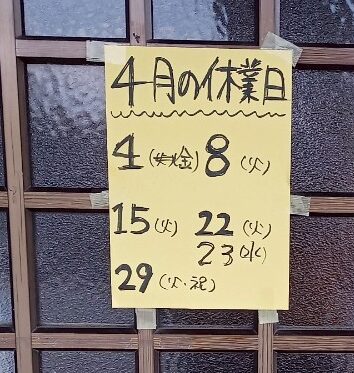 4月の休業日
4(金) 8(火)
15(火) 22(火)
23(水)
29(火・祝)